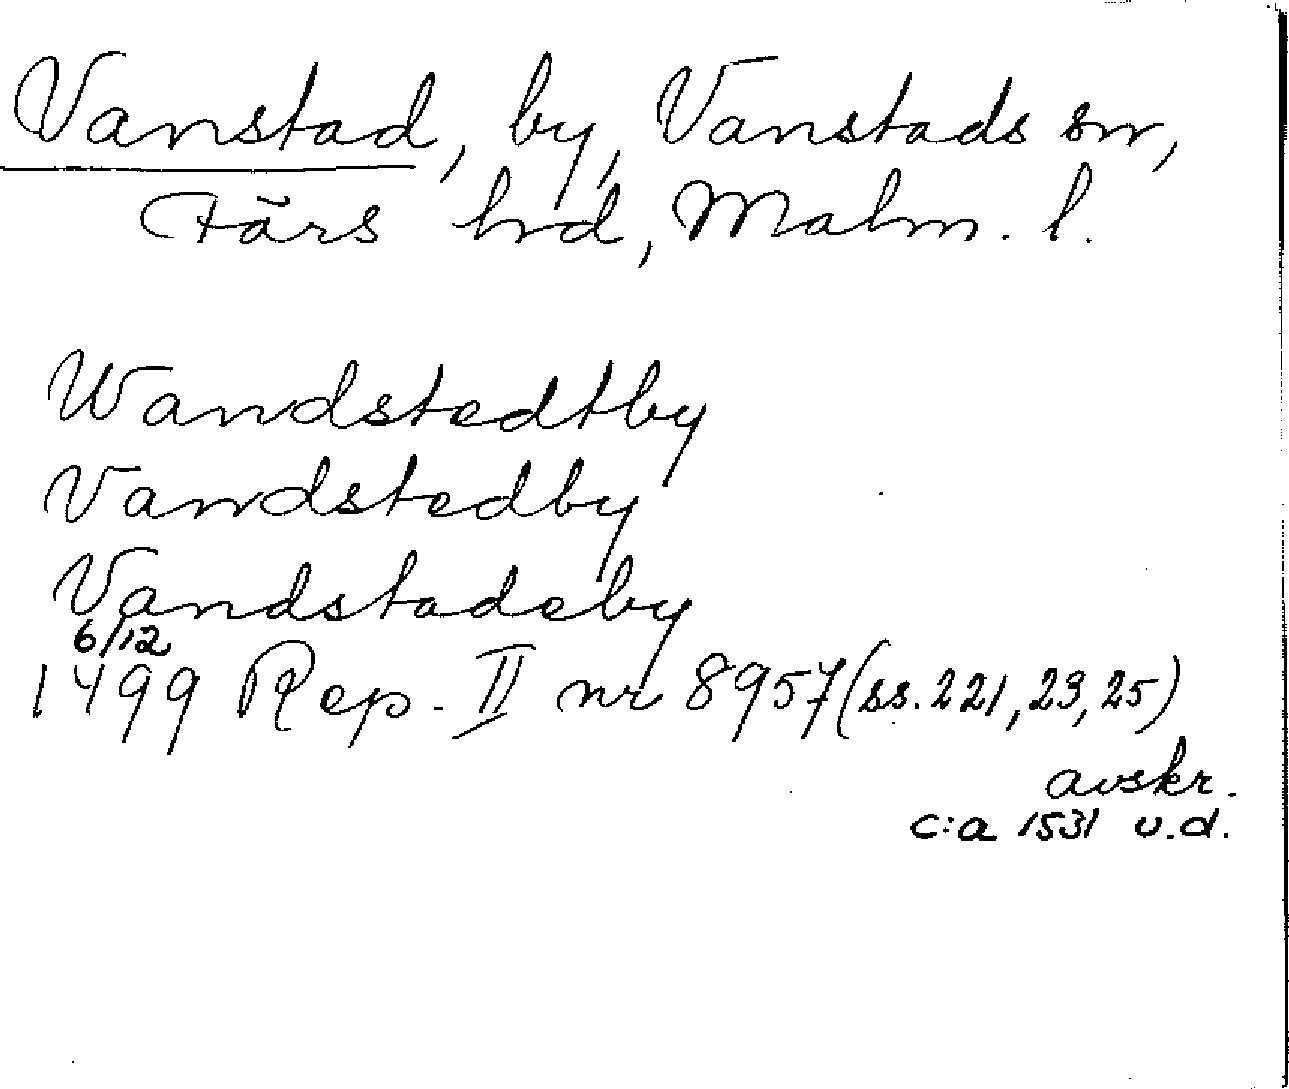 Vanstad, by, Vanstads sn,
Färs hrd, Malm. l.
Wandstedtby
Vandstedby
Vandstadeby
6/12
1499 Rep. II nr 8957 (ss. 221, 23, 25)
avskr.
c:a 1531 u.d.